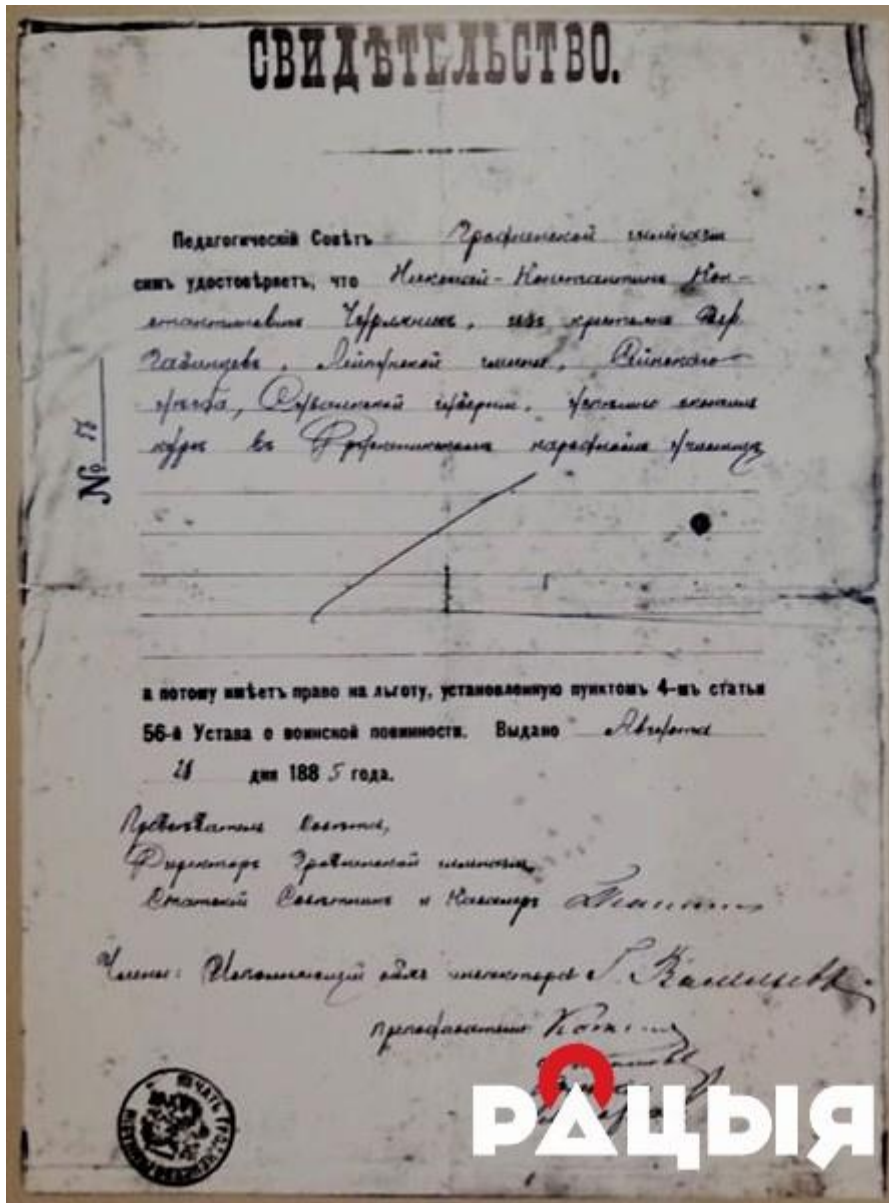 СВИДѢТЕЛЬСТВО.
Педагогическій Совѣтъ Гродненской гимназіи
симъ удостовѣряетъ, что Николай-Константинъ Кон-
стантиновичъ Чурляникъ, изъ крестьянъ дер.
Лейпунской гмины, Сейнскаго
уѣзда, Сувалкской губерніи, успѣшно окончилъ
курсъ въ народномъ училищѣ
№
а потому имѣетъ право на льготу, установленную пунктомъ 4-мъ статьи
56-й Устава о воинской повинности. Выдано Августа
28 дня 1885 года.
Предсѣдатель Совѣта,
Директоръ Гродненской гимназіи,
Статскій Совѣтникъ и Кавалеръ
Члены: Исполняющій обяз. инспектора
преподаватели
ПЕЧАТЬ ГРОДНЕНСКОЙ
РАЦЫЯ